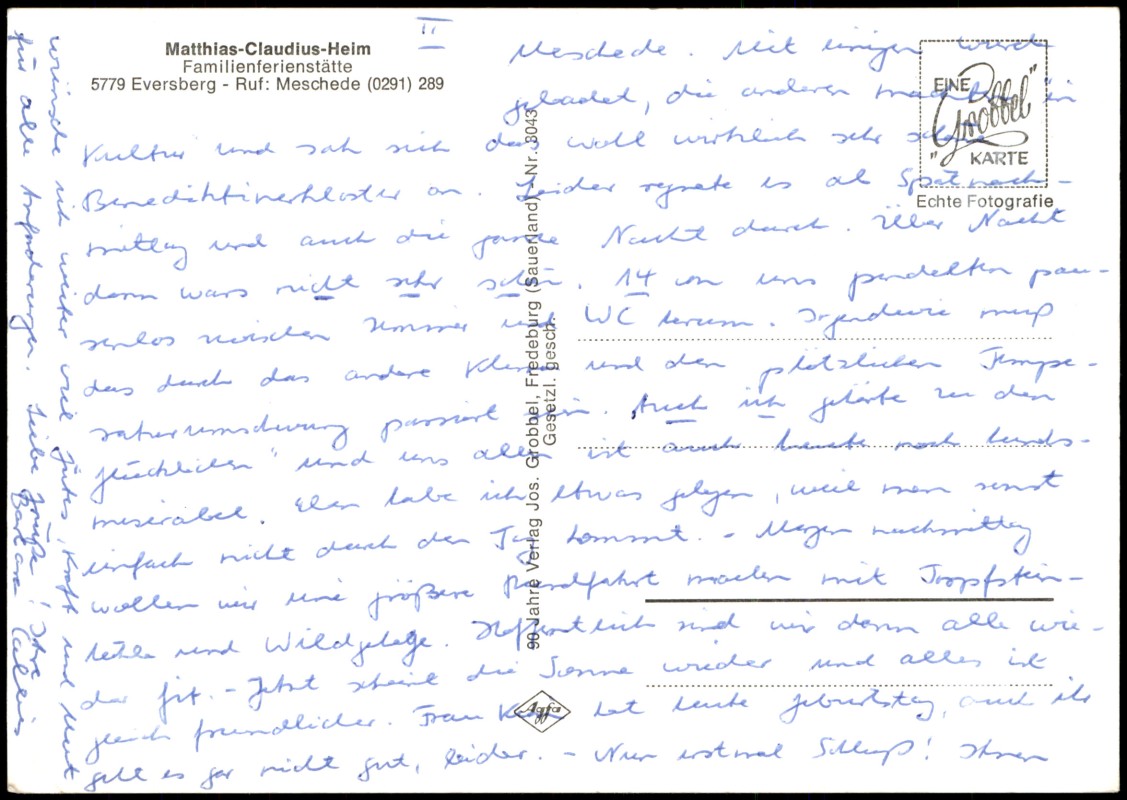 Matthias-Claudius-Heim
Familienferienstätte
5779 Eversberg - Ruf: Meschede (0291) 289
II
Meschede. Mit einigen wurde
gebadet, die anderen machten in
Kultur und sah sich das wohl wirklich sehr schöne
Benediktinerkloster an. Leider regnete es ab Spätnach-
mittag und auch die ganze Nacht durch. Über Nacht
dann wars nicht sehr schön. 14 von uns pendelten pau-
senlos zwischen Zimmer und WC herum. Irgendwie muß
das durch das andere Klima und den plötzlichen Tempe-
raturumschwung passiert sein. Auch ich gehörte zu den
„Glücklichen" und uns allen ist auch heute noch hunds-
miserabel. Eben habe ich etwas gelegen, weil man sonst
einfach nicht durch den Tag kommt. - Morgen nachmittag
wollen wir eine größere Rundfahrt machen mit Tropfstein-
höhle und Wildgehege. Hoffentlich sind wir dann alle wie-
der fit. - Jetzt scheint die Sonne wieder und alles ist
gleich freundlicher. Frau hat heute Geburtstag, auch ihr
geht es gar nicht gut, leider. - Nun erstmal Schluß! Ihnen
wünsche ich weiter viel Gutes, Kraft und Mut
für alle Anforderungen. Liebe Grüße! Ihre
Barbara
EINE
Grobbel
"KARTE"
Echte Fotografie
90 Jahre Verlag Jos. Grobbel, Fredeburg (Sauerland) - Nr. 88043
Gesetzl. gesch.
Agfa